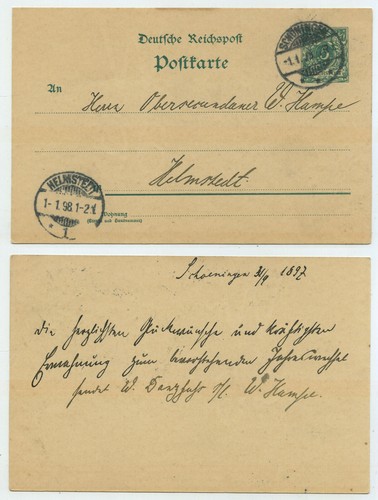 Deutsche Reichspost
Postkarte
SCHÖNINGEN
-1.1.
An
Herrn Obersecundaner W. Hampe
Helmstedt.
HELMSTEDT
1-1.98 1-2 N.
* 1
Wohnung
(Straße und Hausnummer)
Schoeningen 31/ 1897
Die herzlichsten Glückwünsche und kräftigsten
Ermahnung zum bevorstehenden Jahreswechsel
sendet W. W. Hampe.